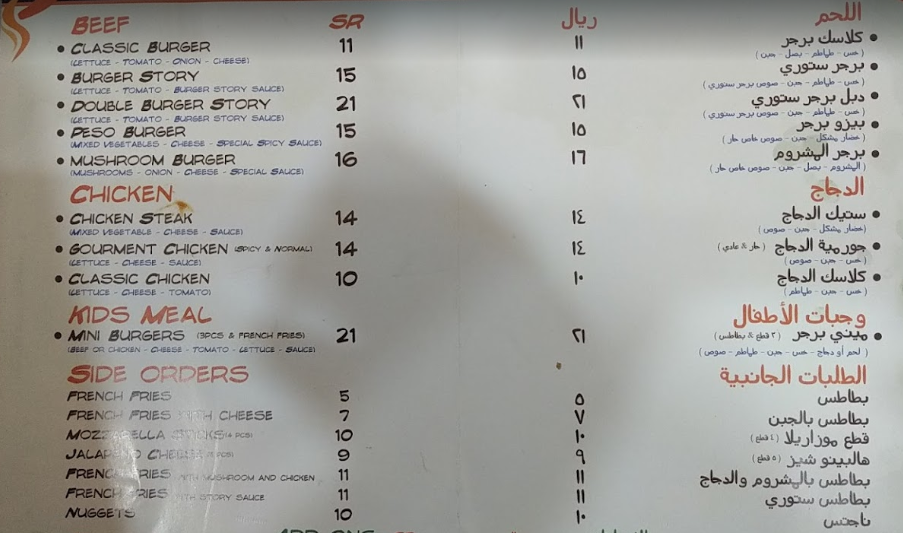 BEEF SR ريال اللحم
CLASSIC BURGER 11 ١١ كلاسك برجر
(LETTUCE - TOMATO - ONION - CHEESE) (خس - طماطم - بصل - جبن)
BURGER STORY 15 ١٥ برجر ستوري
(LETTUCE - TOMATO - BURGER STORY SAUCE) (خس - طماطم - جبن - صوص برجر ستوري)
DOUBLE BURGER STORY 21 ٢١ دبل برجر ستوري
(LETTUCE - TOMATO - BURGER STORY SAUCE) (خس - طماطم - جبن - صوص برجر ستوري)
PESO BURGER 15 ١٥ بيزو برجر
(MIXED VEGETABLES - CHEESE - SPECIAL SPICY SAUCE) (خضار مشكل - جبن - صوص خاص حار)
MUSHROOM BURGER 16 ١٦ برجر المشروم
(MUSHROOMS - ONION - CHEESE - SPECIAL SAUCE) (المشروم - بصل - جبن - صوص خاص حار)
CHICKEN الدجاج
CHICKEN STEAK 14 ١٤ ستيك الدجاج
(MIXED VEGETABLE - CHEESE - SAUCE) (خضار مشكل - جبن - صوص)
GOURMENT CHICKEN (SPICY & NORMAL) 14 ١٤ جورمية الدجاج (حار & عادي)
(LETTUCE - CHEESE - SAUCE) (خس - جبن - صوص)
CLASSIC CHICKEN 10 ١٠ كلاسك الدجاج
(LETTUCE - CHEESE - TOMATO) (خس - جبن - طماطم)
KIDS MEAL وجبات الأطفال
MINI BURGERS (3PCS & FRENCH FRIES) 21 ٢١ ميني برجر (٣ قطع & بطاطس)
(BEEF OR CHICKEN - CHEESE - TOMATO - LETTUCE - SAUCE) (لحم أو دجاج - خس - جبن - طماطم - صوص)
SIDE ORDERS الطلبات الجانبية
FRENCH FRIES 5 ٥ بطاطس
FRENCH FRIES WITH CHEESE 7 ٧ بطاطس بالجبن
MOZZARELLA STICKS (4 PCS) 10 ١٠ قطع موزاريلا (٤ قطع)
JALAPENO CHEESE (5 PCS) 9 ٩ هالبينو شيز (٥ قطع)
FRENCH FRIES WITH MUSHROOM AND CHICKEN 11 ١١ بطاطس بالمشروم والدجاج
FRENCH FRIES WITH STORY SAUCE 11 ١١ بطاطس ستوري
NUGGETS 10 ١٠ ناجتس